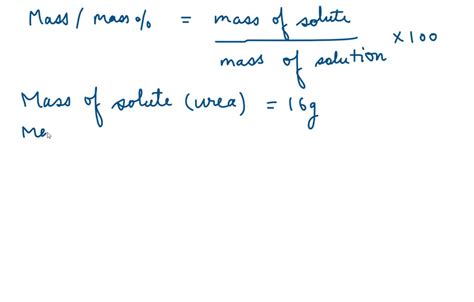 Mass / mass % = mass of solute / mass of solution × 100
Mass of solute (urea) = 16g
Me